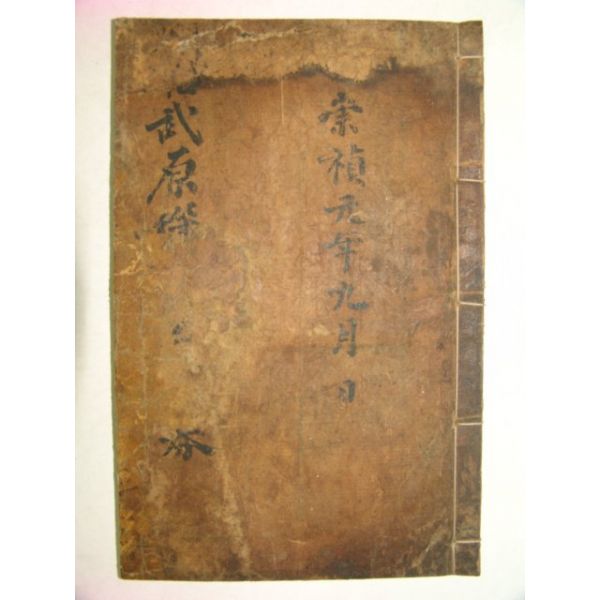 崇禎元年九月 日
武原從 券